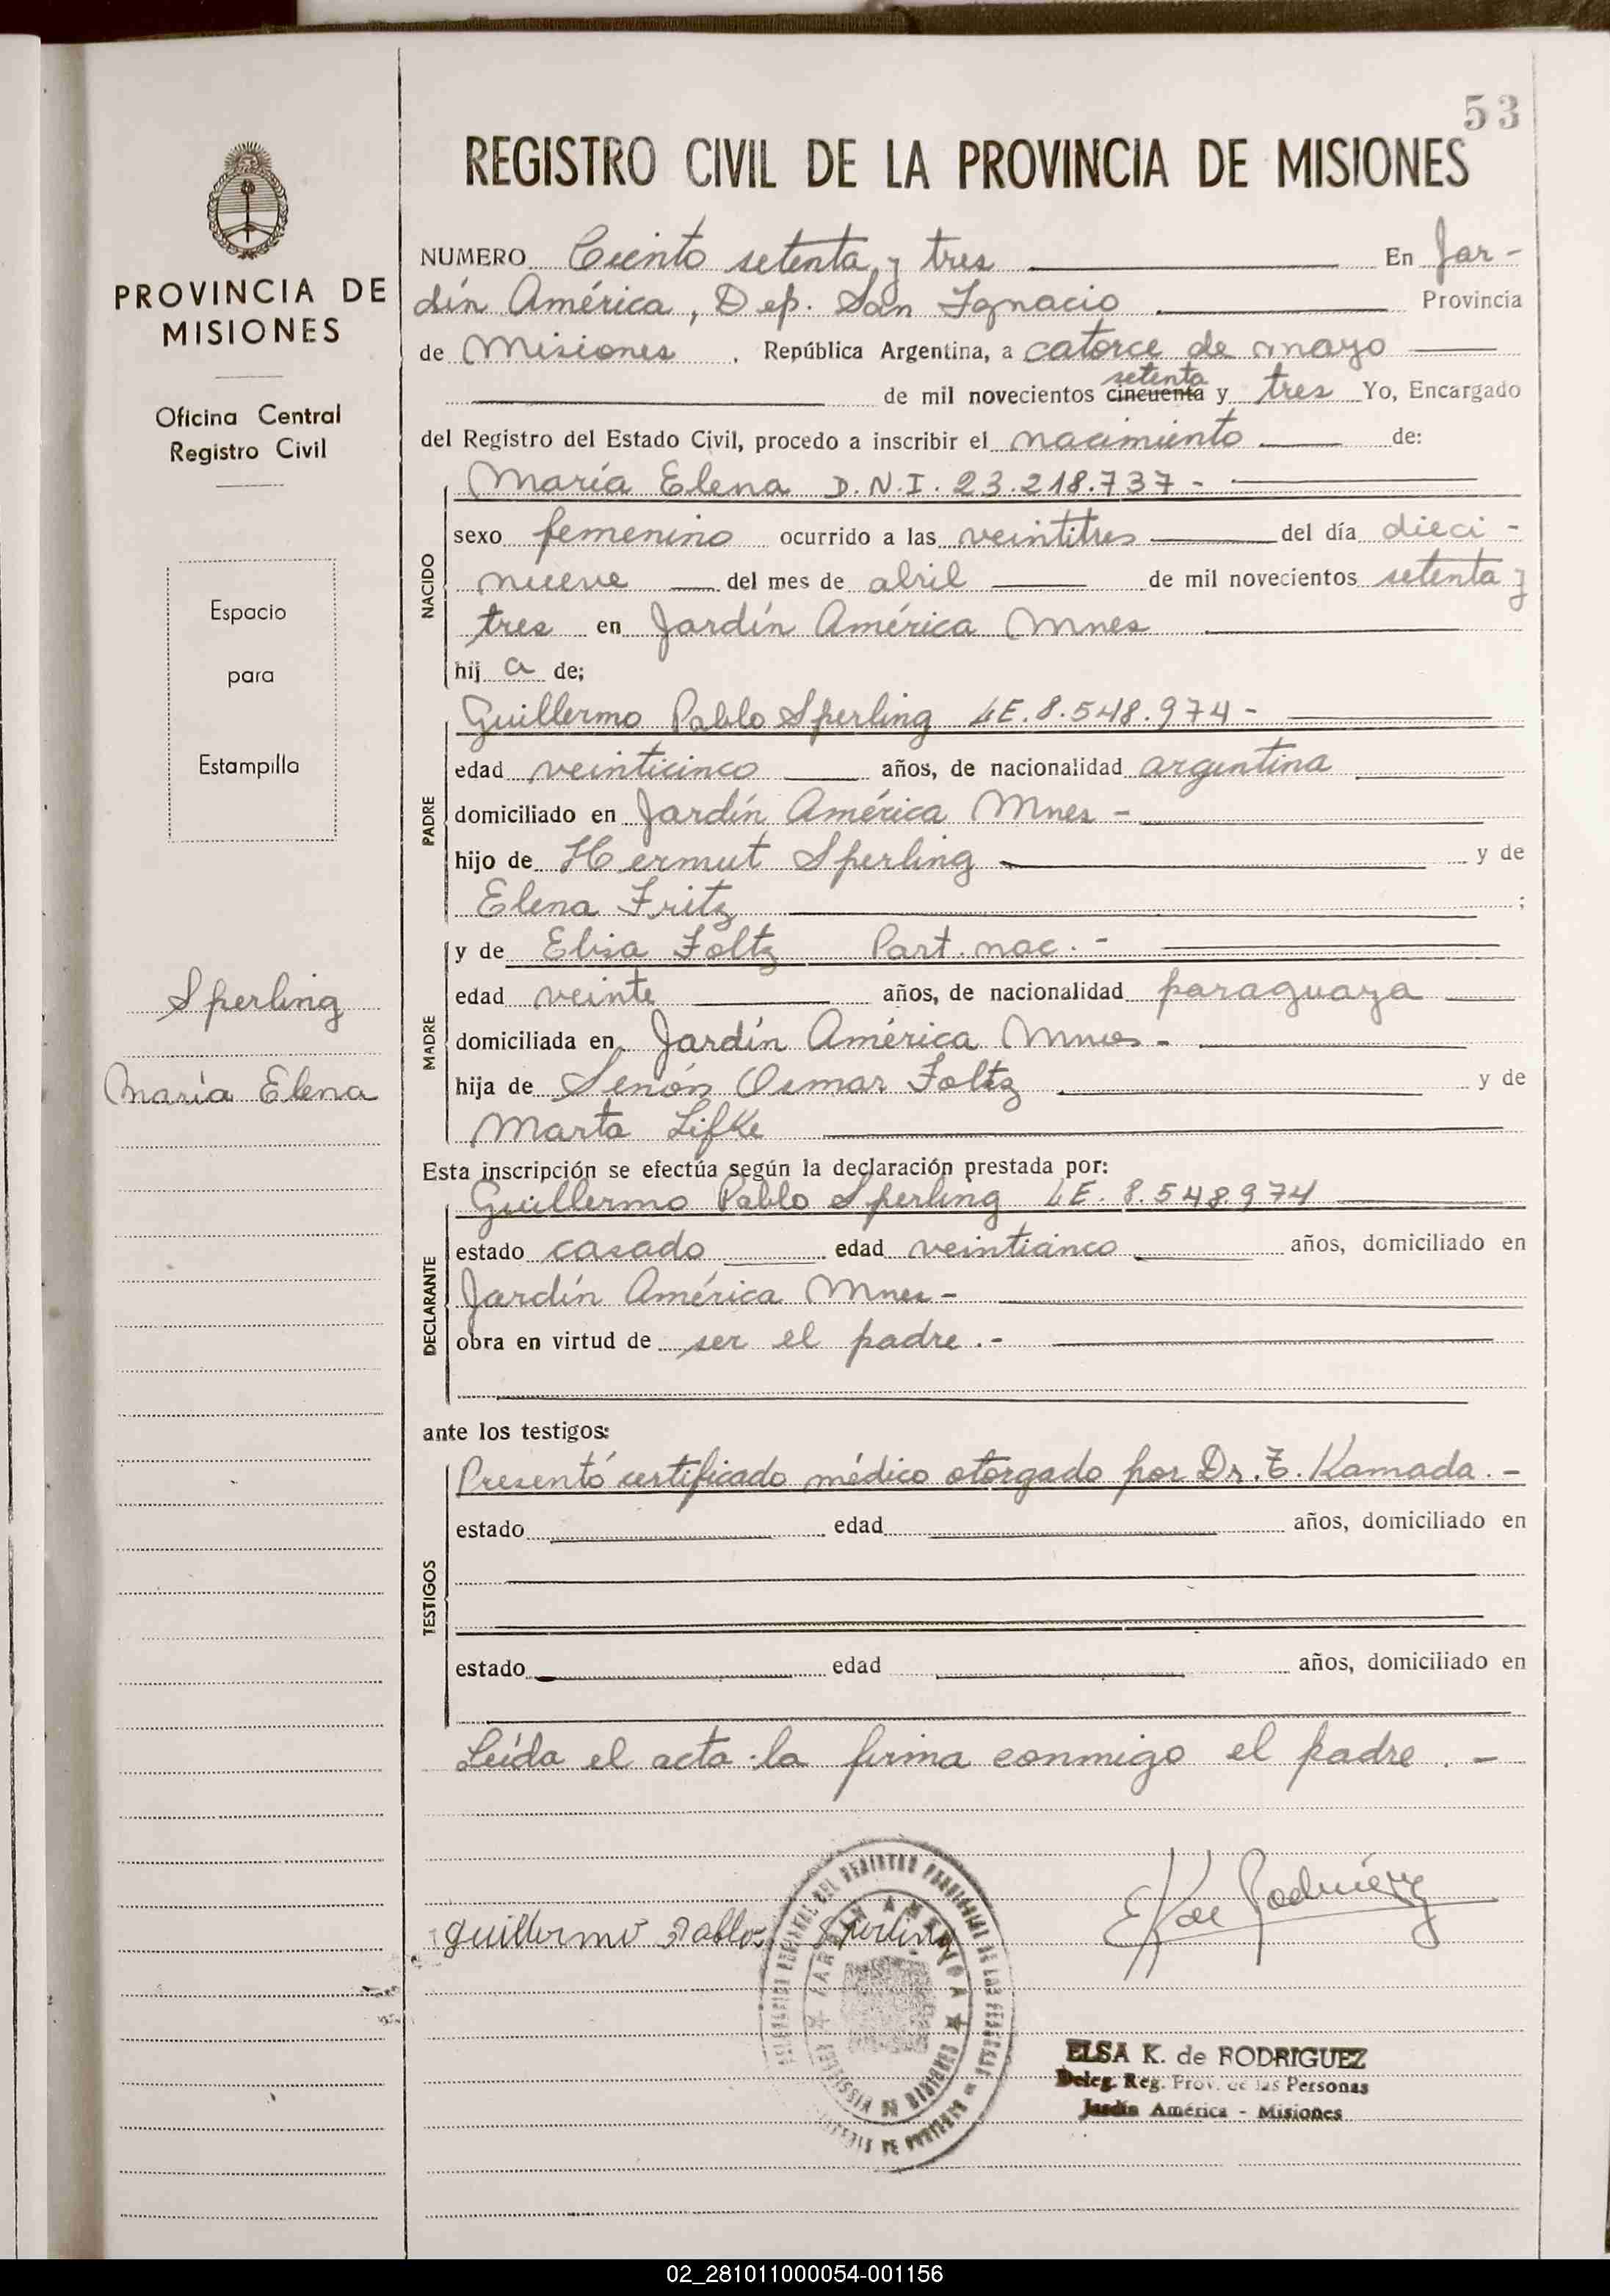 53
REGISTRO CIVIL DE LA PROVINCIA DE MISIONES
PROVINCIA DE
MISIONES
Oficina Central
Registro Civil
Espacio
para
Estampilla
Sperling
María Elena
NUMERO Ciento setenta y tres En Jar-
dín América, Dep. San Ignacio Provincia
de Misiones . República Argentina, a catorce de mayo
setenta
de mil novecientos cincuenta y tres Yo, Encargado
del Registro del Estado Civil, procedo a inscribir el nacimiento de:
NACIDO
María Elena D.N.I. 23.218.737-
sexo femenino ocurrido a las veintitres del día dieci-
nueve del mes de abril de mil novecientos setenta y
tres en Jardín América Mnes
hij a de;
PADRE
Guillermo Pablo Sperling LE. 8.548.974-
edad veinticinco años, de nacionalidad argentina
domiciliado en Jardín América Mnes-
hijo de Hermut Sperling y de
Elena Fritz ;
MADRE
y de Elisa Foltz Part. nac.-
edad veinte años, de nacionalidad paraguaya
domiciliada en Jardín América Mnes-
hija de Senón Osmar Foltz y de
Marta Lifke
Esta inscripción se efectúa según la declaración prestada por:
DECLARANTE
Guillermo Pablo Sperling LE. 8.548.974
estado casado edad veinticinco años, domiciliado en
Jardín América Mnes-
obra en virtud de ser el padre.-
ante los testigos:
TESTIGOS
Presentó certificado médico otorgado por Dr. T. Kamada.-
estado edad años, domiciliado en
estado edad años, domiciliado en
Leída el acta la firma conmigo el padre.-
Guillermo Pablo Sperling
EK de Rodriguez
JARDIN AMERICA
ELSA K. de RODRIGUEZ
Deleg. Reg. Prov. de las Personas
Jardín América - Misiones
02_281011000054-001156